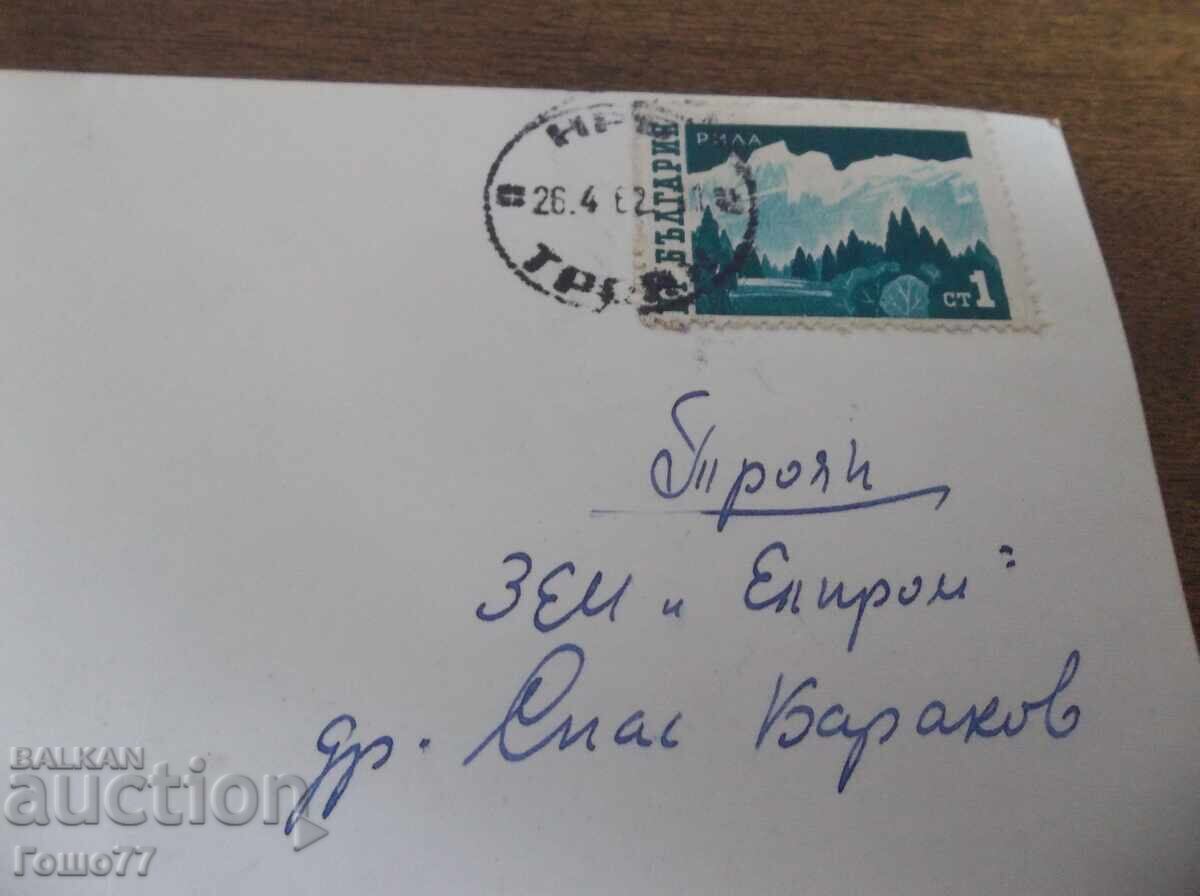 НР
26.4 62
ТРОЯ
БЪЛГАРИЯ
РИЛА
СТ 1
Троян
ЗЕМ „Елпром"
др. Спас Бараков
BALKAN
auction
Гошо77